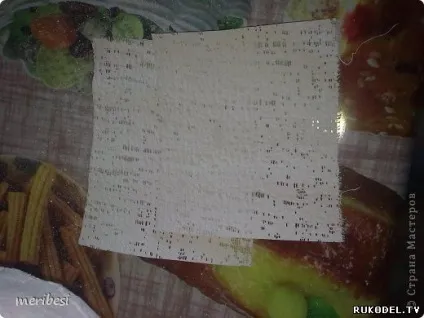 © Страна Мастеров
meribesi
RUKODEL.TV